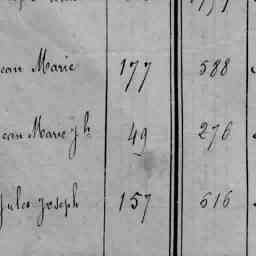 ean Marie 177 588
ean Marie Jh 49 276
Jules Joseph 157 616